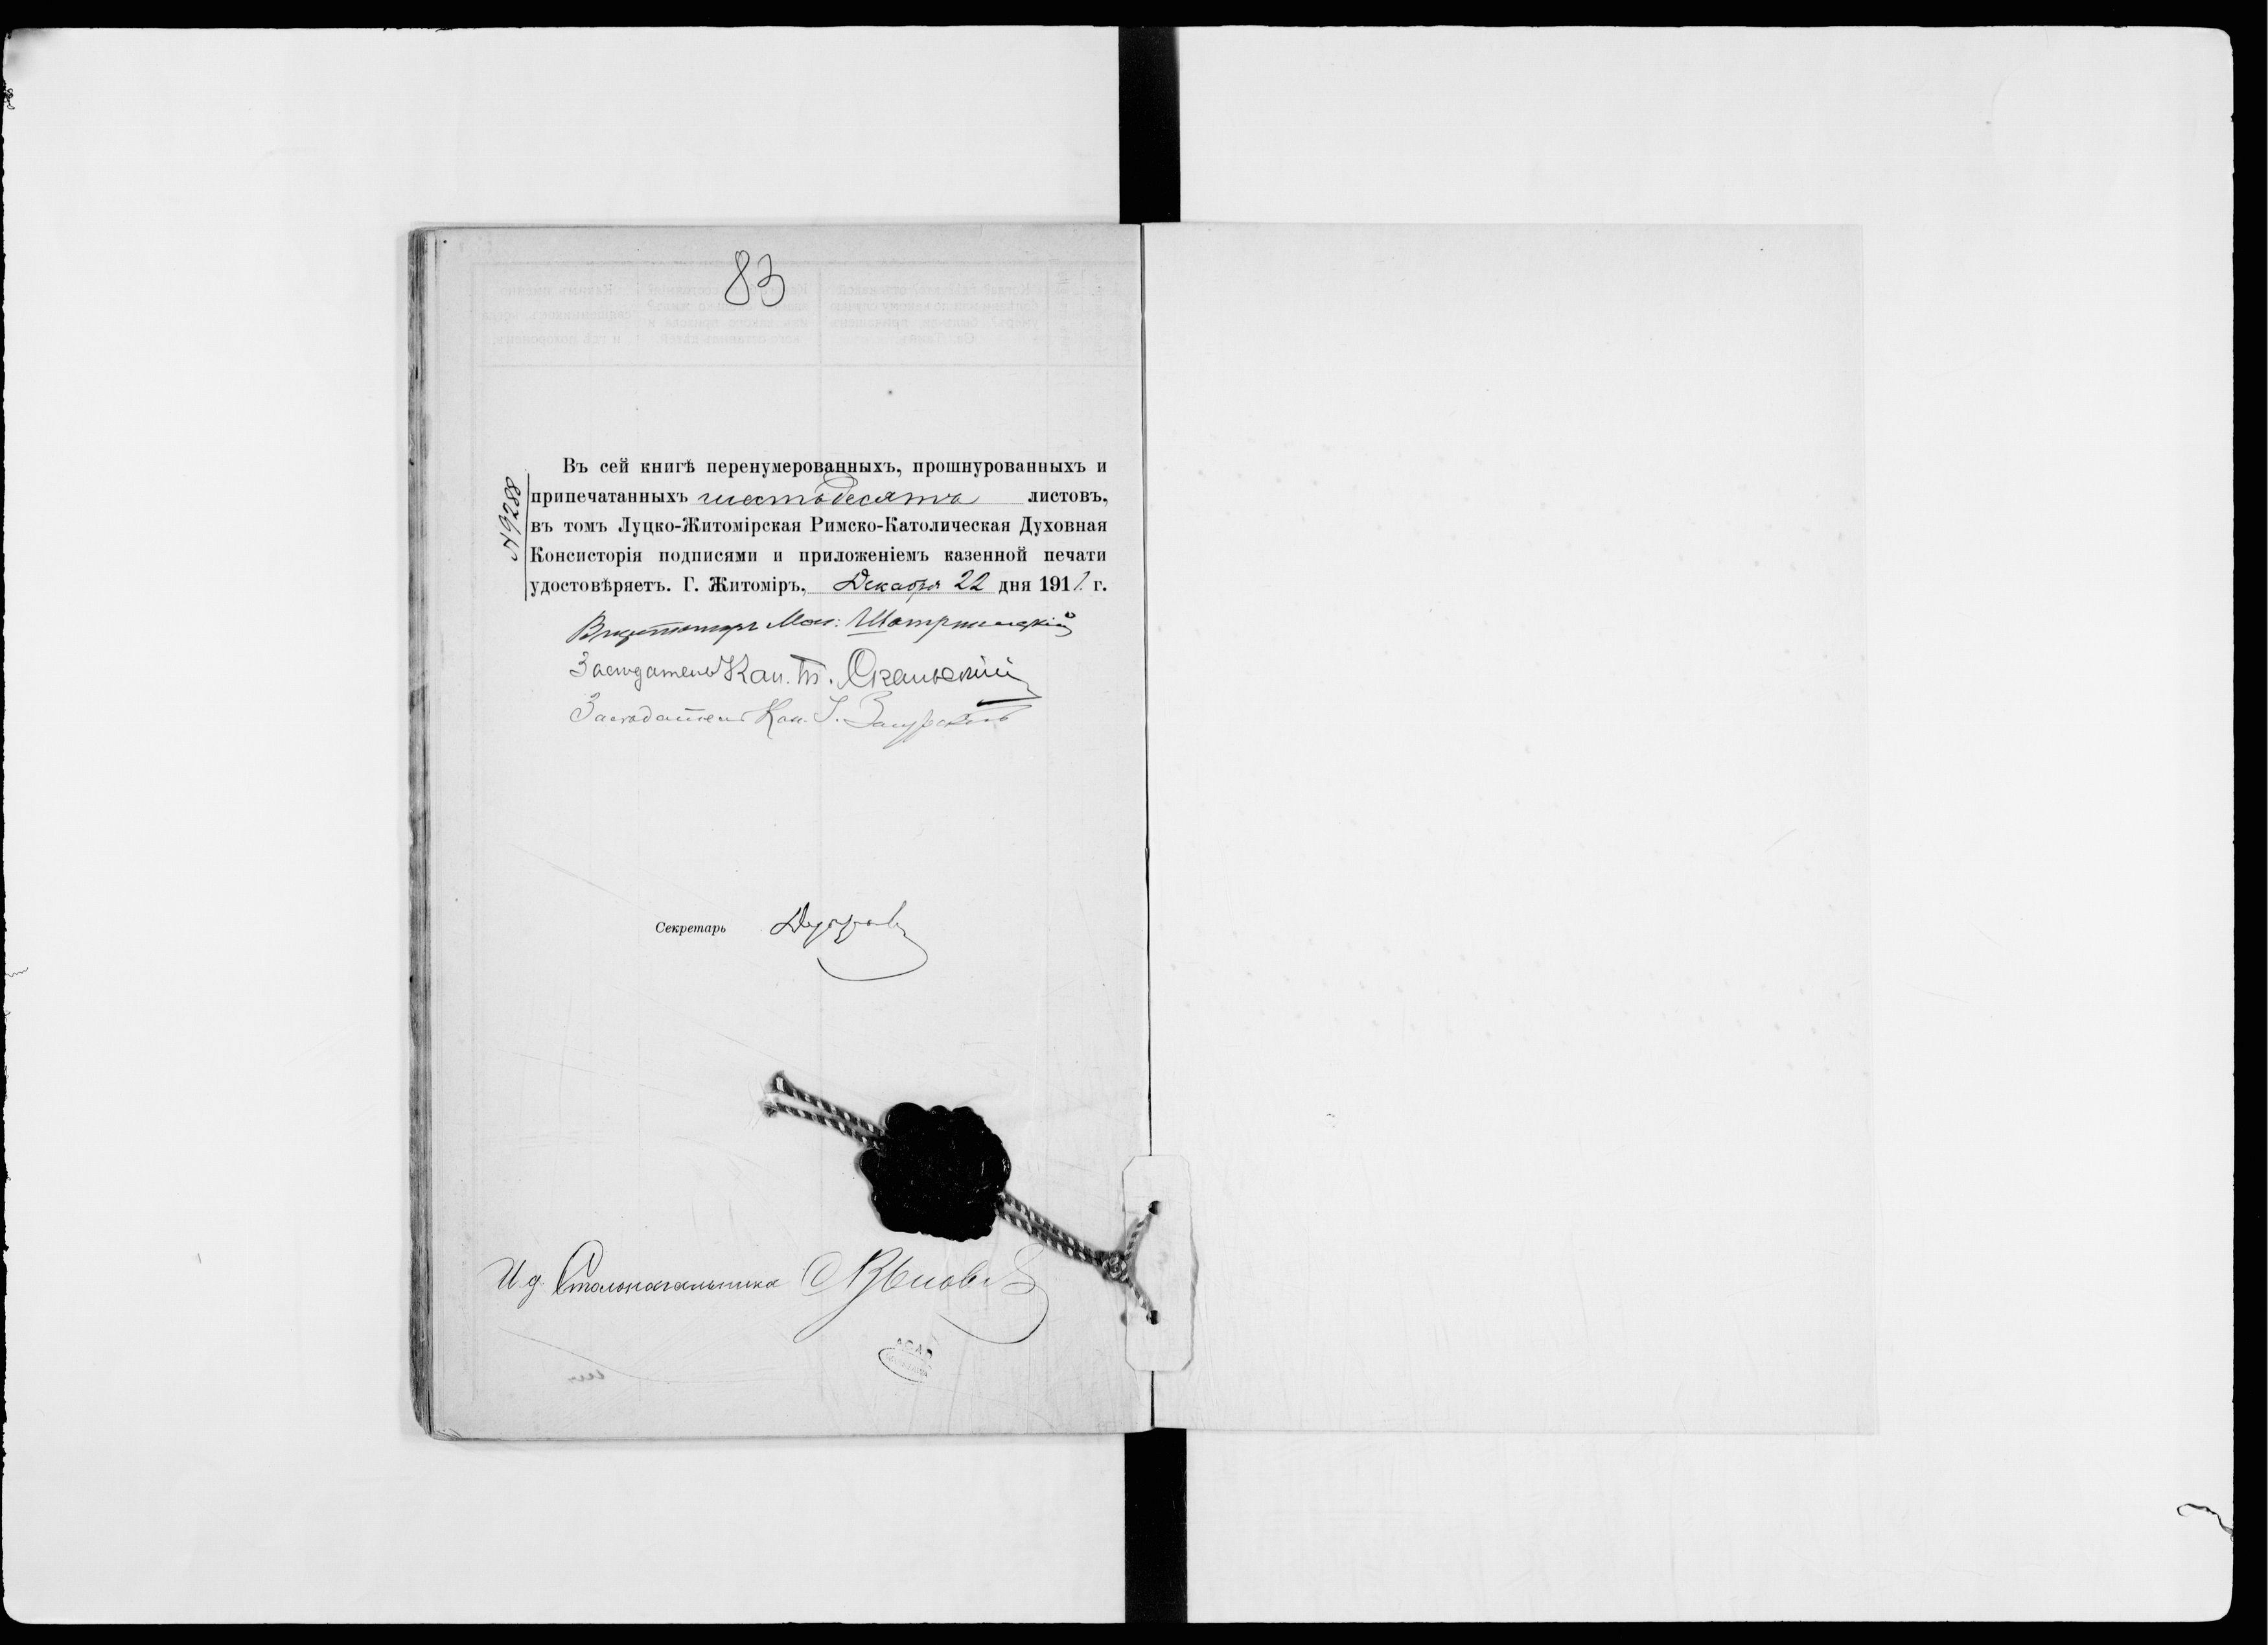 83
Въ сей книгѣ перенумерованныхъ, прошнурованныхъ и
припечатанныхъ шестьдесятъ листовъ,
въ томъ Луцко-Житомірская Римско-Католическая Духовная
Консисторія подписями и приложеніемъ казенной печати
удостовѣряетъ. Г. Житоміръ, Декабря 22 дня 1911 г.
№9288
Засѣдатель Кан. Скальскій
Засѣдатель Кан. І.
Секретарь
И. д. Столоначальника